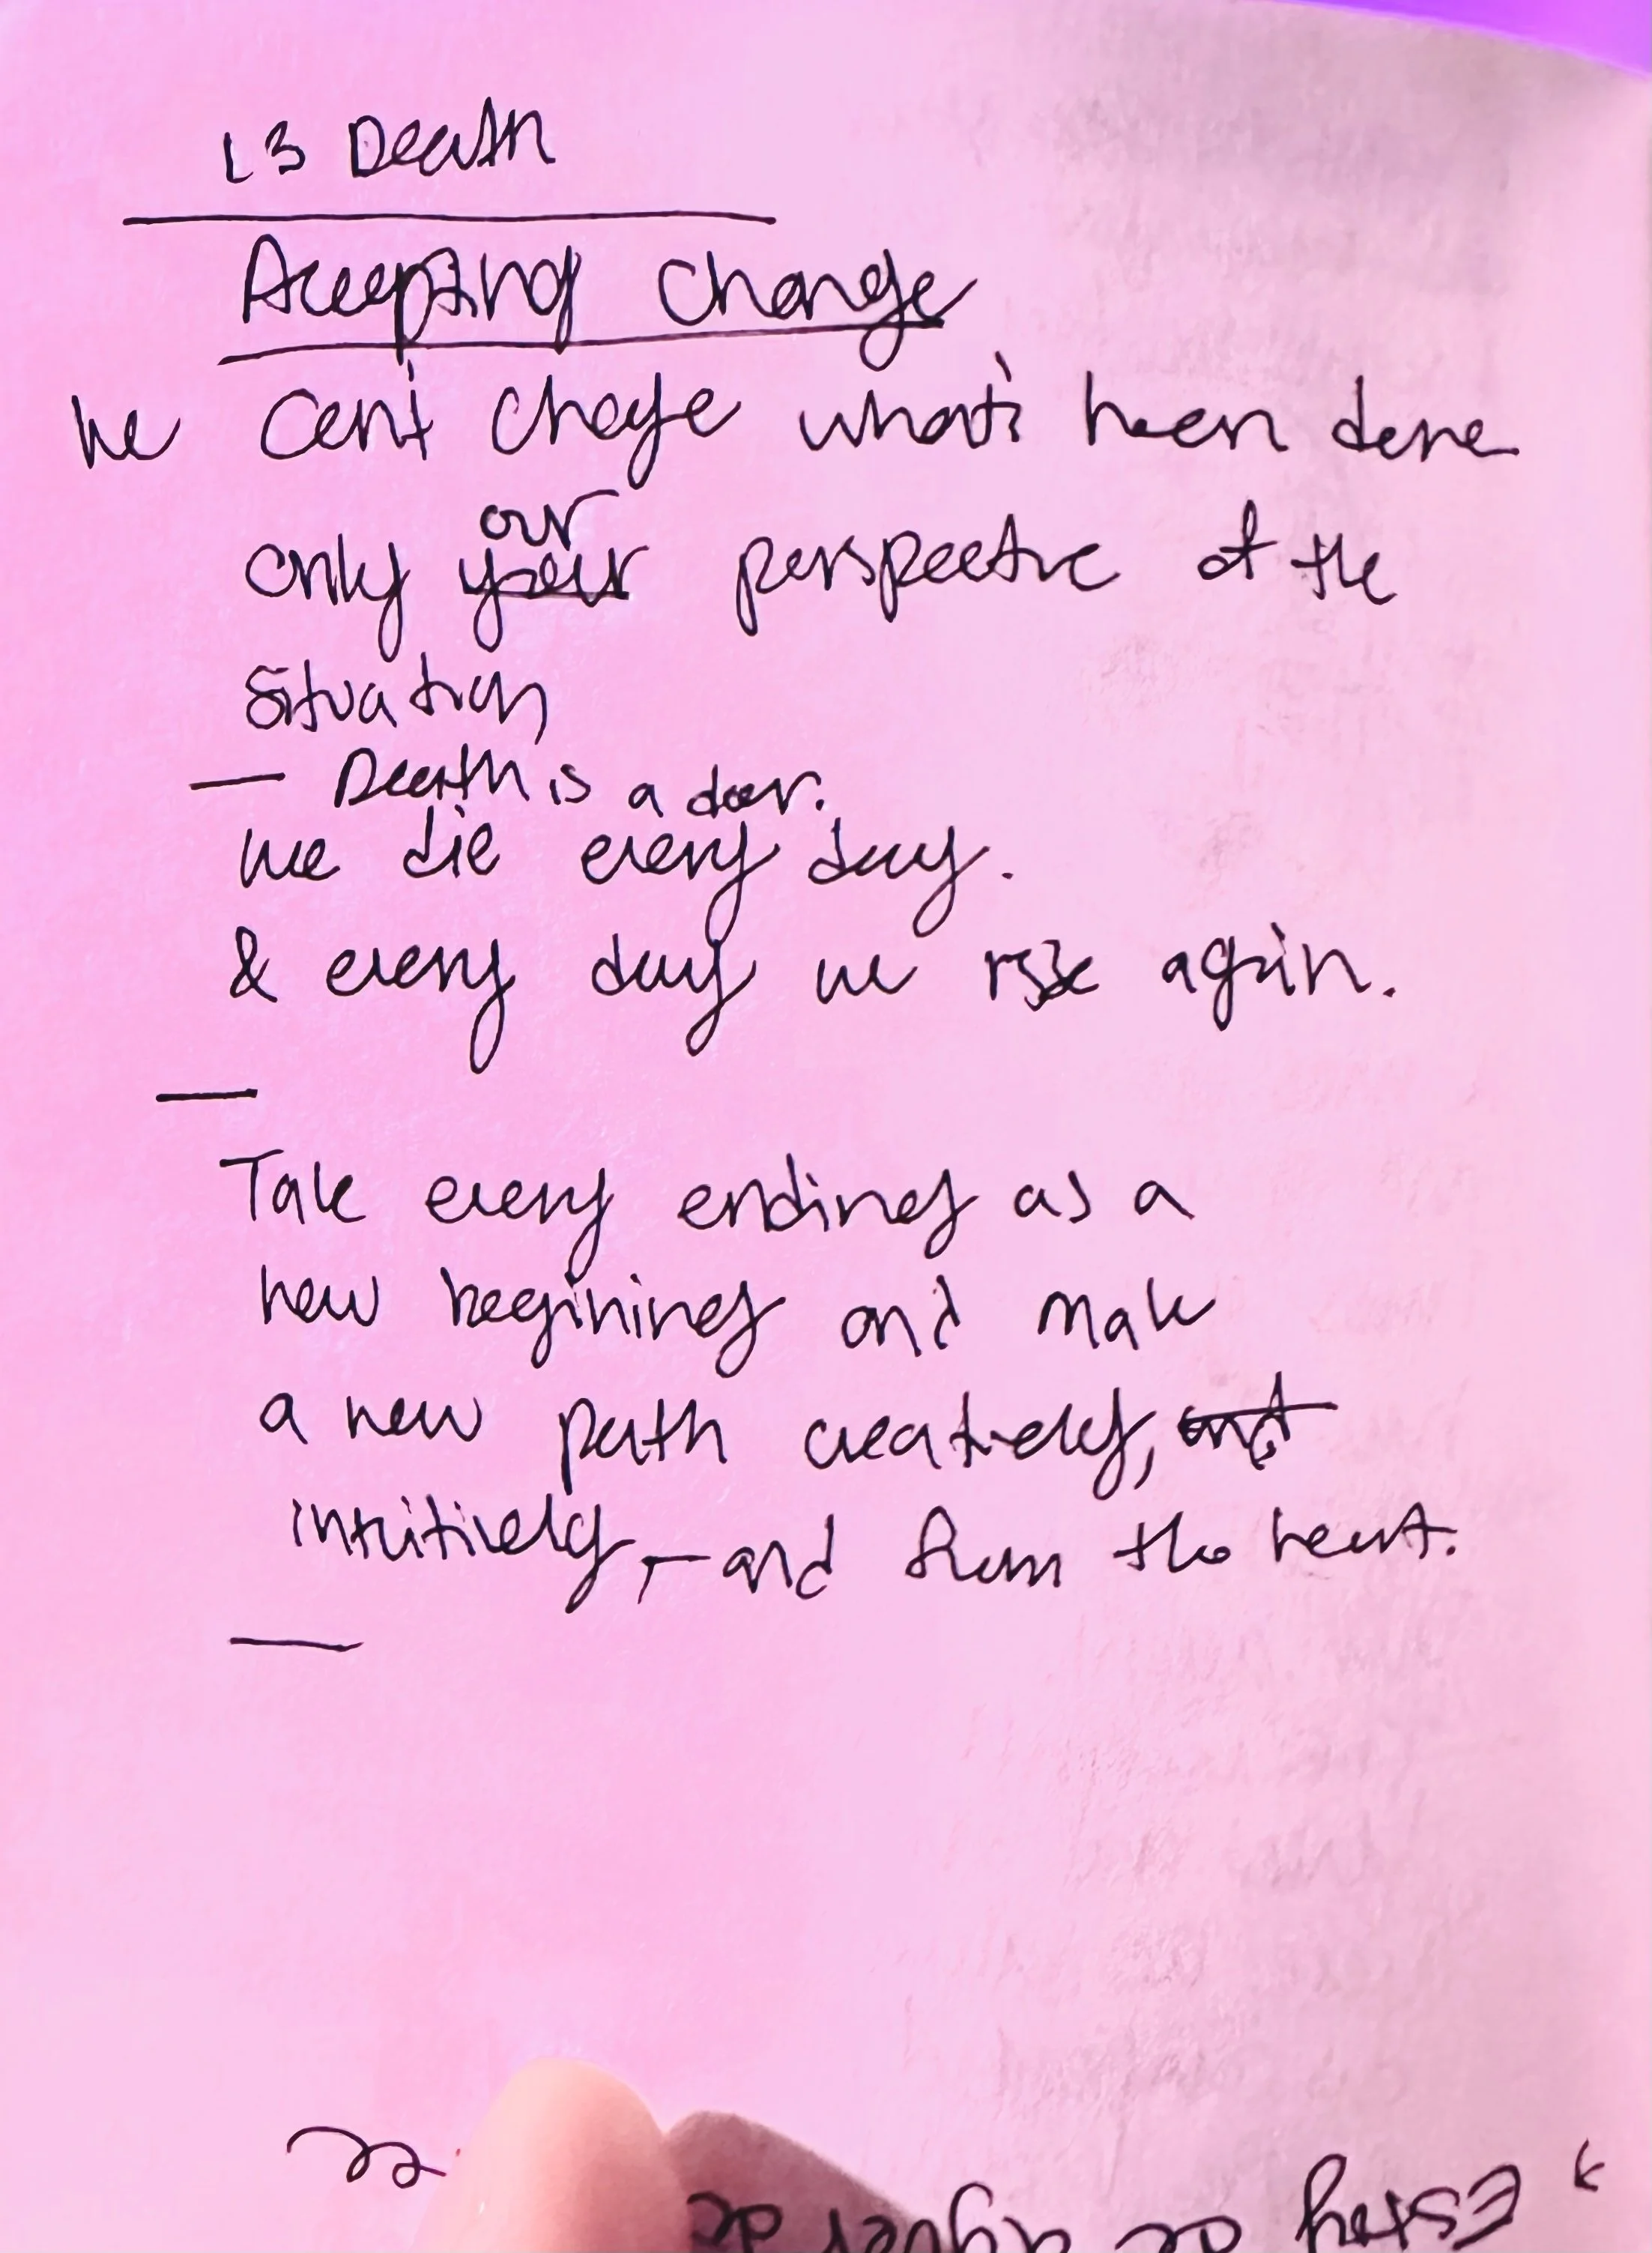 13 Death
Accepting Change
We can't change what's been done
only our your perspective of the
situation
— Death is a door.
We die every day.
& every day we rise again.
—
Take every ending as a
new beginining and make
a new path creatively, and
intuitively, — and from the heart.
—